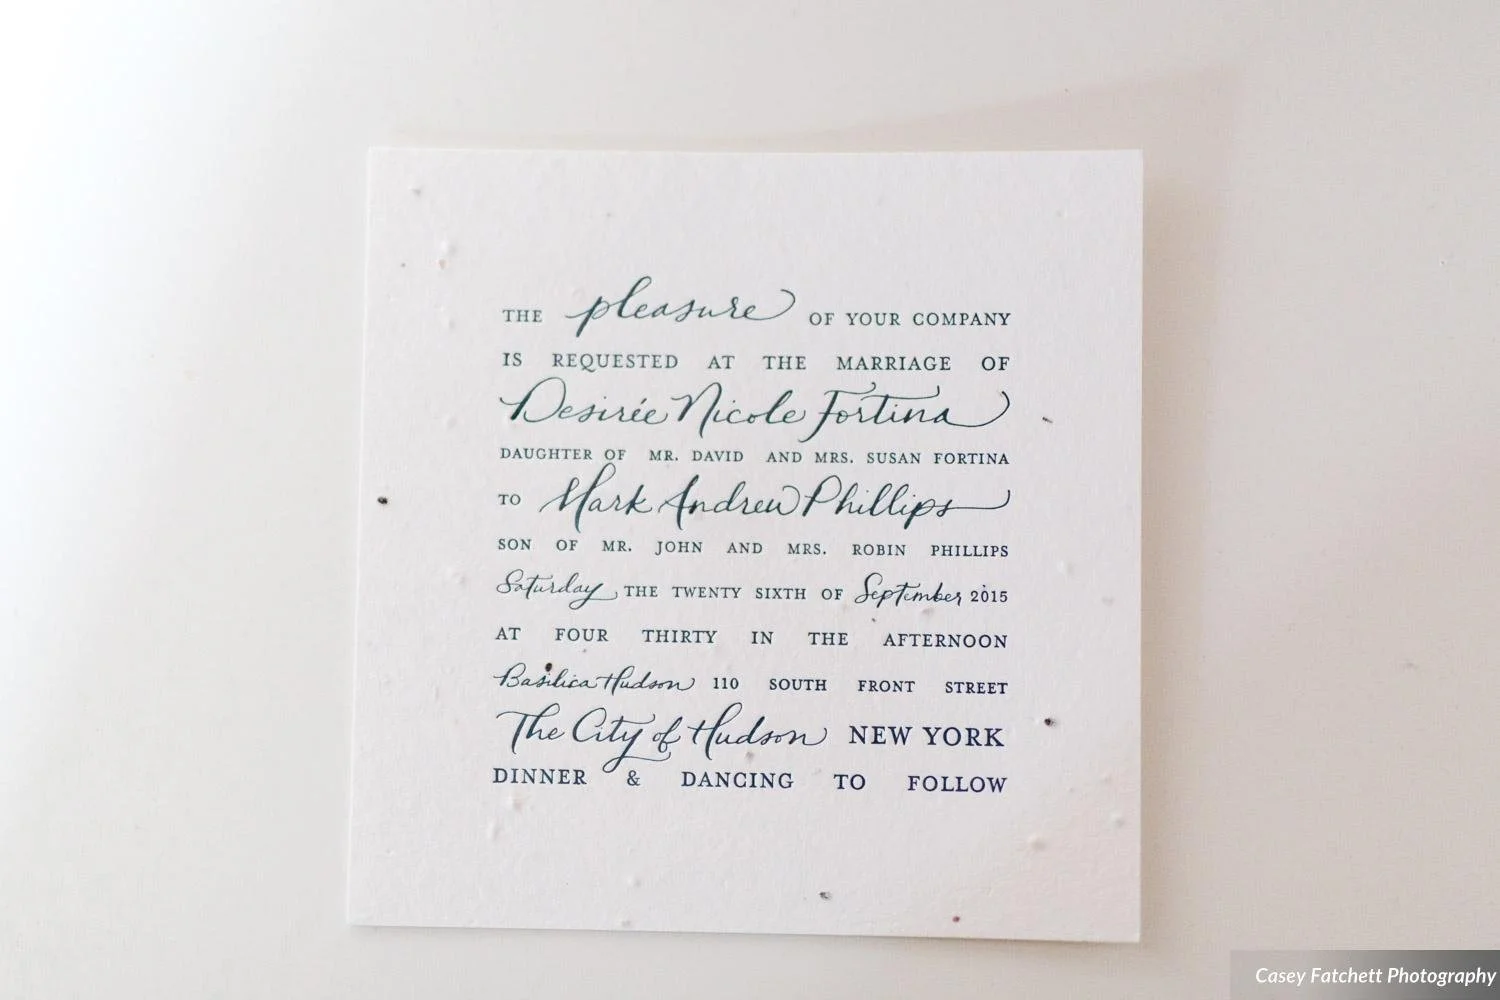 THE pleasure OF YOUR COMPANY
IS REQUESTED AT THE MARRIAGE OF
Desirée Nicole Fortina
DAUGHTER OF MR. DAVID AND MRS. SUSAN FORTINA
TO Mark Andrew Phillips
SON OF MR. JOHN AND MRS. ROBIN PHILLIPS
Saturday THE TWENTY SIXTH OF September 2015
AT FOUR THIRTY IN THE AFTERNOON
Basilica Hudson 110 SOUTH FRONT STREET
The City of Hudson NEW YORK
DINNER & DANCING TO FOLLOW
Casey Fatchett Photography